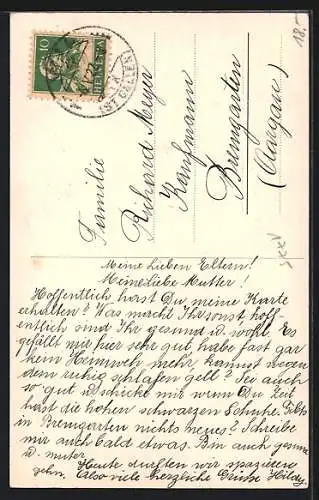 18.-
10
HELVETIA
(ST. GALLEN)
Familie
Richard Meyer
Kaufmann
Bremgarten
(Aargau)
Meine lieben Eltern!
Meine liebe Mutter!
Hoffentlich hast Du meine Karte
erhalten? Was macht Ihr sonst hoff-
entlich sind Ihr gesund u. wohl. Es
gefällt mir hier sehr gut, habe fast gar
kein Heimweh mehr, kannst wegen
dem ruhig schlafen gell? Sei auch
so gut u. schicke mir wenn Du Zeit
hast die hohen schwarzen Schuhe. Gibts
in Bremgarten nichts neues? Schreibe
mir auch bald etwas. Bin auch gesund
u. munter.
Heute durften wir spazieren
gehn. Also viele herzliche Grüsse Hildeg.